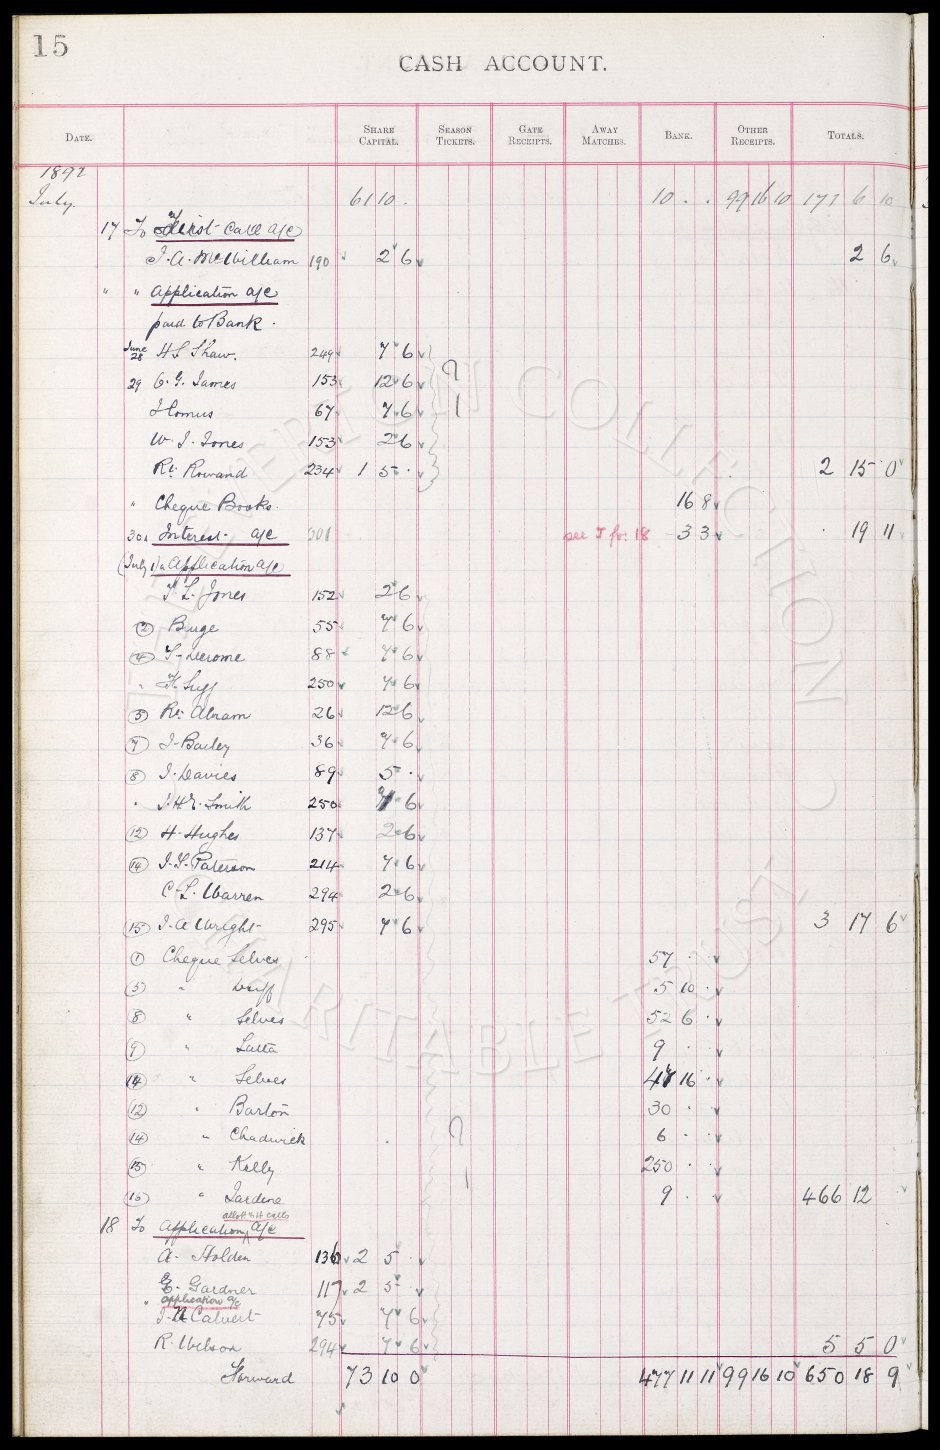 15
CASH ACCOUNT.
DATE. SHARE CAPITAL. SEASON TICKETS. GATE RECEIPTS. AWAY MATCHES. BANK. OTHER RECEIPTS. TOTALS.
1892
July. 61 10 . 10 . . 99 16 10 171 6 10
17 To First Call a/c
J. A. McWilliam 190 2 6 2 6
" " Application a/c
paid to Bank.
June 28 H S Shaw. 249 7 6
29 C. G. James 153 12 6
67 7 6
W. J. Jones 153 2 6
Rt. Rowand 234 1 5 . 2 15 0
" Cheque Books 16 8
30 Interest a/c 301 see J fo: 18 3 3 19 11
(July 1) " Application a/c
T. L. Jones 152 2 6
(2) Burge 55 7 6
(4) 88 7 6
" 250 7 6
(5) Rt. Abram 26 12 6
(7) J. Bailey 36 7 6
(8) J. Davies 89 5 .
" J. H. E. Smith 250 7 6
(12) H. Hughes 137 2 6
(14) J. S. Paterson 214 7 6
C. L. Warren 294 2 6
(15) J. A Wright 295 7 6 3 17 6
(1) Cheque Selves 57 . .
(5) " 5 10 .
(8) " Selves 52 6 .
(9) " Latta 9 . .
(11) " Selves 47 16 .
(12) " Barton 30 . .
(14) " Chadwick 6 . .
(15) " Kelly 250 . .
(16) " Jardine 9 . . 466 12
allott & H calls
18 To Application a/c
A. Holden 136 2 5 .
E. Gardner 117 2 5 .
" application a/c
J. N Calvert 75 7 6
R. Wilson 294 7 6 5 5 0
Forward 73 10 0 477 11 11 99 16 10 650 18 9
THE EVERTON COLLECTION CHARITABLE TRUST ©